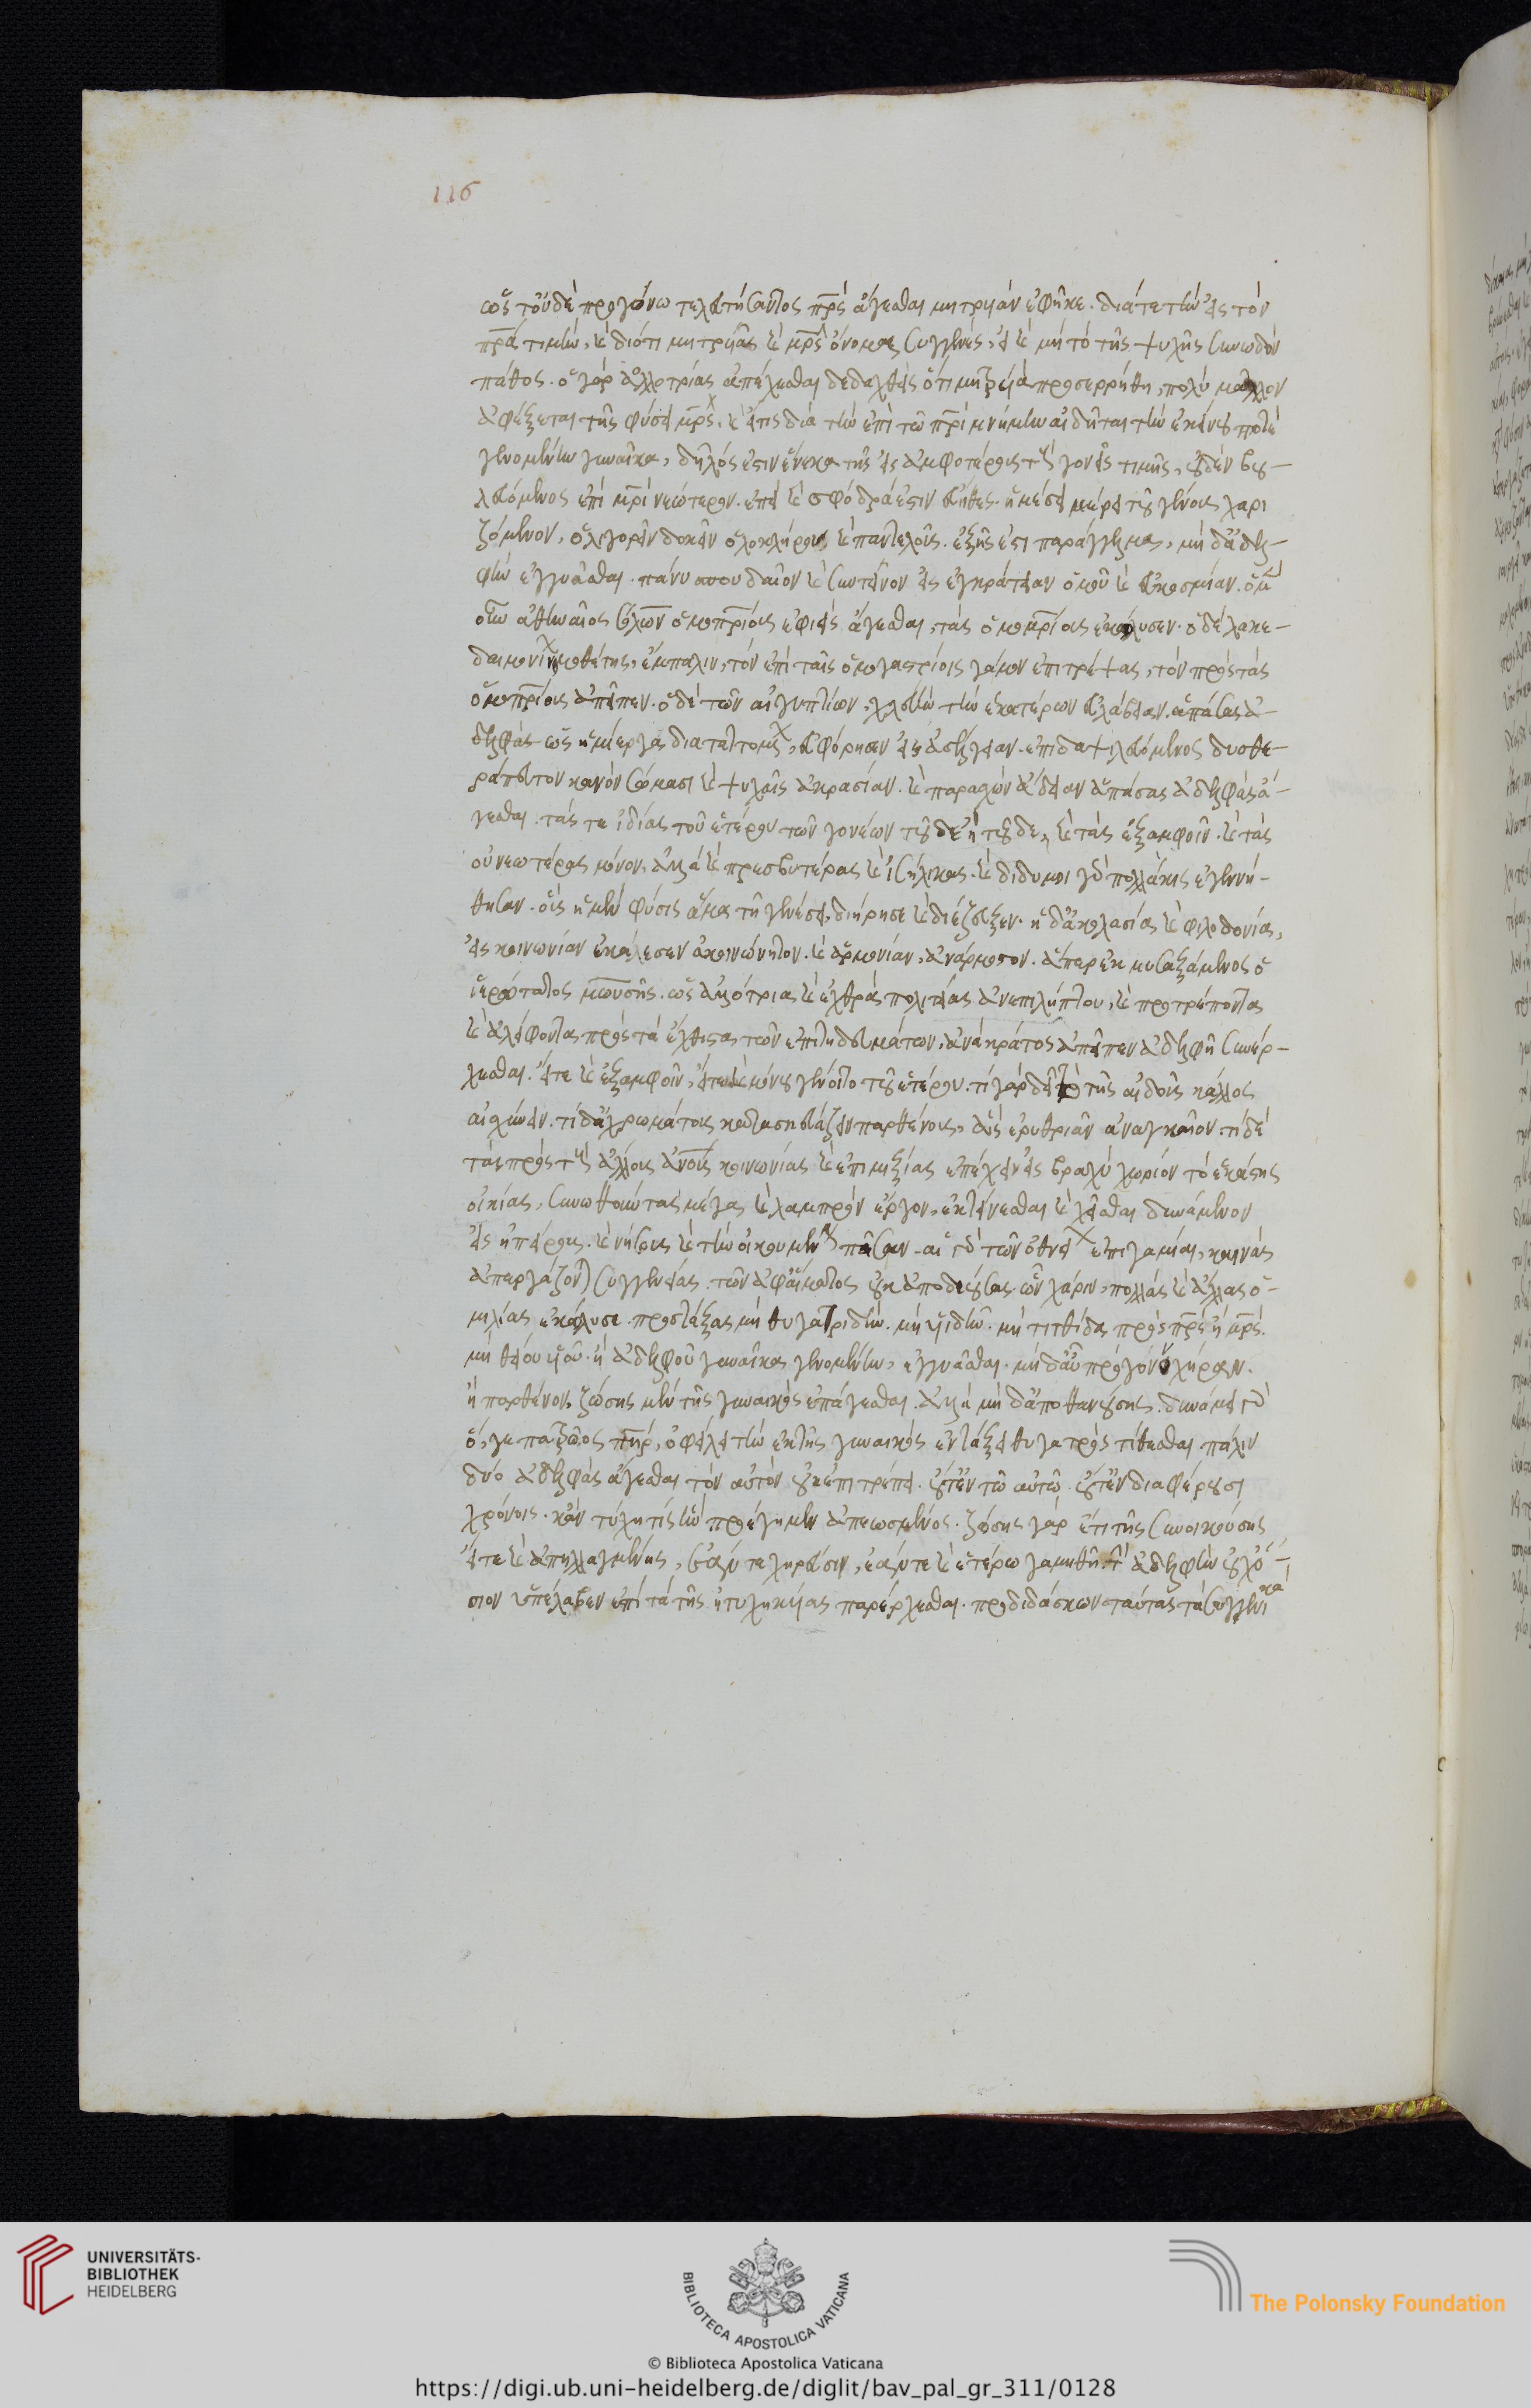 116
ὡς τοὐδὲ προγόνω τελευτήσαντος πρς ἄγεσθαι μητρυιὰν ἐφῆκε. διάτε τὴν εἰς τὸν
πρα τιμὴν, καὶ διότι μητρυιᾶς καὶ μρς ὄνομα συγγενές, εἰ καὶ μὴ τὸ τῆς ψυχῆς συνωδὸν
πάθος. ὁ γὰρ ἀλλοτρίας ἀπέχεσθαι δεδαχθεὶς ὅτι μητρυιὰ προσερρήθη, πολὺ μᾶλλον
ἀφέξεται τῆς φύσει μρς. καὶ εἴτις διὰ τὴν ἐπὶ τῶ πρι μνήμην αἰδῆται τὴν ἐκείνου ποτὲ
γενομένην γυναῖκα, δῆλός ἐστιν ἕνεκα τῆς εἰς ἀμφοτέρους τοὺς γονεῖς τιμῆς, οὐδὲν βου-
λευόμενος ἐπὶ μρι νεώτερον. ἐπεὶ καὶ σφόδρά ἐστιν εὔηθες. ἡμίσει μέρει τοῦ γένους χαρι
ζόμενον, ὀλιγορεῖν δοκεῖν ὁλοκλήρου καὶ παντελοῦς. ἑξῆς ἐστι παράγγελμα, μὴ δ' ἀδελ-
φὴν ἐγγυᾶσθαι. πάνυ σπουδαῖον καὶ συντεῖνον εἰς ἐγκράτειαν ὁμοῦ καὶ εὐκοσμίαν. ὁ μ
οὖν ἀθηναῖος σόλων ὁμοπρίους ἐφιεὶς ἄγεσθαι, τὰς ὁμομρίους ἐκώλυσεν. ὁ δὲ λακε-
δαιμονίων νομοθέτης, ἔμπαλιν, τὸν ἐπὶ ταῖς ὁμογαστρίοις γάμον ἐπιτρέψας, τὸν πρὸς τὰς
ὁμοπρίους ἀπεῖπεν. ὁ δὲ τῶν αἰγυπτίων, χλευὴν τὴν ἑκατέρων εὐλάβειαν. ἁπάσας ἀ-
δελφὰς ὡς ἡμίεργα διαταττομένων, εὐφόρησεν εἰς ἀσέλγειαν. ἐπιδαψιλευόμενος δυσθε-
ράπευτον κακὸν σώμασι καὶ ψυχαῖς ἀκρασίαν. καὶ παρασχὼν ἄδειαν ἁπάσας ἀδελφὰς ἄ-
γεσθαι. τάς τε ἰδίας τοῦ ἑτέρου τῶν γονέων τοῦδε ἢ τοῦδε, καὶ τὰς ἐξ ἀμφοῖν. καὶ τὰς
οὐ νεωτέρας μόνον, ἀλλὰ καὶ πρεσβυτέρας καὶ ἰσήλικας. καὶ δίδυμοι γὰρ πολλάκις ἐγεννή-
θησαν. οὓς ἡ μὲν φύσις ἅμα τῆ γενέσει διήρησε καὶ διέζευξεν. ἡ δ' ἀκολασίας καὶ φιληδονίας,
εἰς κοινωνίαν ἐκάλεσεν ἀκοινώνητον. καὶ ἁρμονίαν, ἀνάρμοστον. ἅπερ ἐκ μυσαξάμενος ὁ
ἱερώτατος μωυσῆς. ὡς ἀλλότρια καὶ ἐχθρὰ πολιτείας ἀνεπιλήπτου, καὶ προτρέποντας
καὶ ἀλείφοντας πρὸς τὰ ἔχθιστα τῶν ἐπιτηδευμάτων, ἀνὰ κράτος ἀπεῖπεν ἀδελφῆ συνέρ-
χεσθαι. εἴτε καὶ ἐξ ἀμφοῖν, εἴτε καὶ μόνου γένοιτο τοῦ ἑτέρου. τί γὰρ δεῖ τὸ τῆς αἰδοῦς κάλλος
αἰσχύνειν. τί δ' ἀχρωμάτους κατασκευάζειν παρθένους, ἃς ἐρυθριᾶν ἀναγκαῖον. τί δὲ
τὰς πρὸς τοὺς ἄλλους ἀνους κοινωνίας καὶ ἐπιμιξίας ἐπέχειν εἰς βραχὺ χωρίον τὸ ἑκάστης
οἰκίας, συνωθοῦντας μέγα καὶ λαμπρὸν ἔργον, ἐκτείνεσθαι καὶ χεῖσθαι δυνάμενον
εἰς ἠπείρους. καὶ νήσους καὶ τὴν οἰκουμένην πᾶσαν. αἱ γὰρ τῶν ὀθνείων ἐπιγαμίαι, καινὰς
ἀπεργάζονται συγγενείας. τῶν ἀφ' αἵματος οὐκ ἀποδεούσας. ὧν χάριν, πολλὰς καὶ ἄλλας ὁ-
μιλίας ἐκώλυσε. προστάξας μὴ θυγατριδὴν. μὴ ὑϊδὴν. μὴ τιτθίδα πρὸς πρς ἢ μρς.
μὴ θείου ὑοῦ. ἢ ἀδελφοῦ γυναῖκα γενομένην, ἐγγυᾶσθαι. μὴ δ' αὖ πρόγονον χήραν.
ἢ παρθένον, ζώσης μὲν τῆς γυναικὸς ἐπάγεσθαι. ἀλλὰ μὴ δ' ἀποθανούσης. δυνάμει γὰρ
ὅ,γε πατρῶος πηρ, ὀφείλει τὴν ἐκ τῆς γυναικὸς ἐν τάξει θυγατρὸς τίθεσθαι. πάλιν
δύο ἀδελφὰς ἄγεσθαι τὸν αὐτὸν οὐκ ἐπιτρέπει. οὔτ' ἐν τῶ αὐτῶ. οὔτ' ἐν διαφέρουσι
χρόνοις. κἂν τύχη τίς ἣν προέγημεν ἀπεωσμένος. ζώσης γὰρ ἔτι τῆς συνοικούσης
εἴτε καὶ ἀπηλλαγμένης, ἐάν τε χηρεύσιν, ἐάν τε καὶ ἑτέρω γαμηθῆ τὴν ἀδελφὴν οὐχ ὅ-
σιον ὑπέλαβεν ἐπὶ τὰ τῆς ἠτυχηκυίας παρέρχεσθαι. προδιδάσκων ταύτας τὰ συγγενικὰ
UNIVERSITÄTS-
BIBLIOTHEK
HEIDELBERG
BIBLIOTECA APOSTOLICA VATICANA
The Polonsky Foundation
© Biblioteca Apostolica Vaticana
https://digi.ub.uni-heidelberg.de/diglit/bav_pal_gr_311/0128